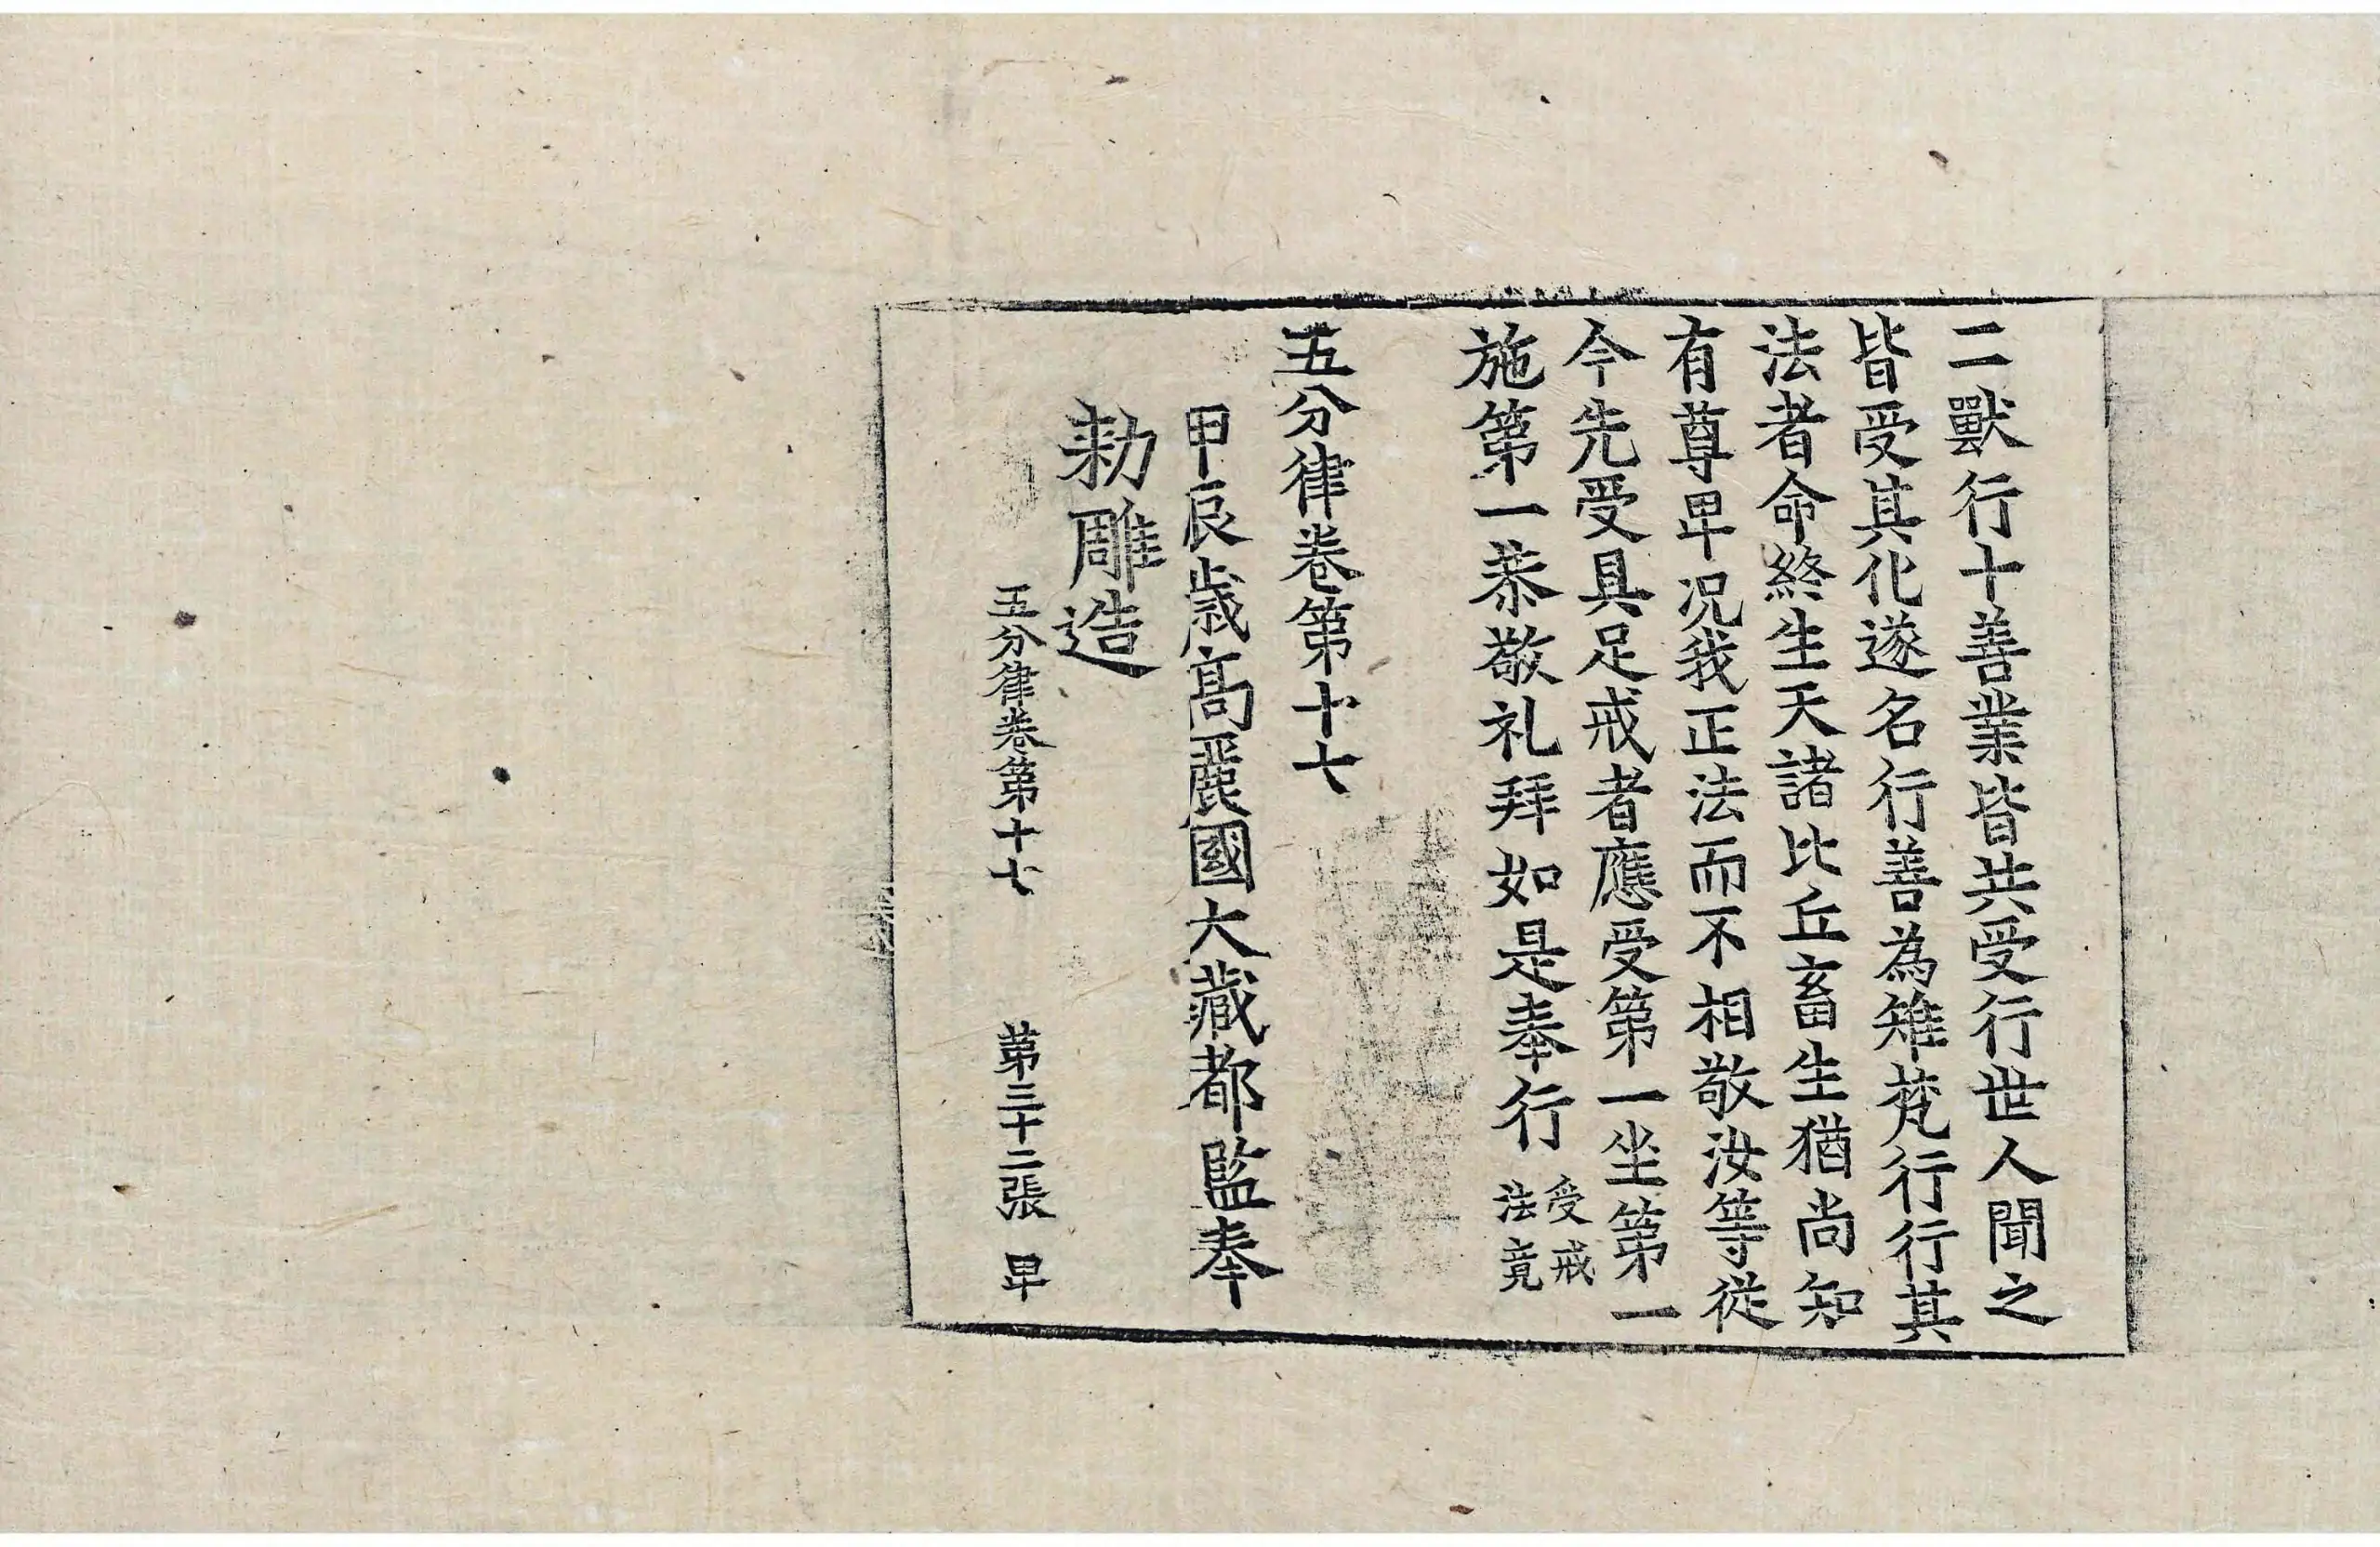 二獸行十善業皆共受行世人聞之
皆受其化遂名行善為雉梵行行其
法者命終生天諸比丘畜生猶尚知
有尊卑况我正法而不相敬汝等從
今先受具足戒者應受第一坐第一
施第一恭敬礼拜如是奉行受戒法竟
五分律卷第十七
甲辰歳高麗國大藏都監奉
勅雕造
五分律卷第十七 第三十二張 卑